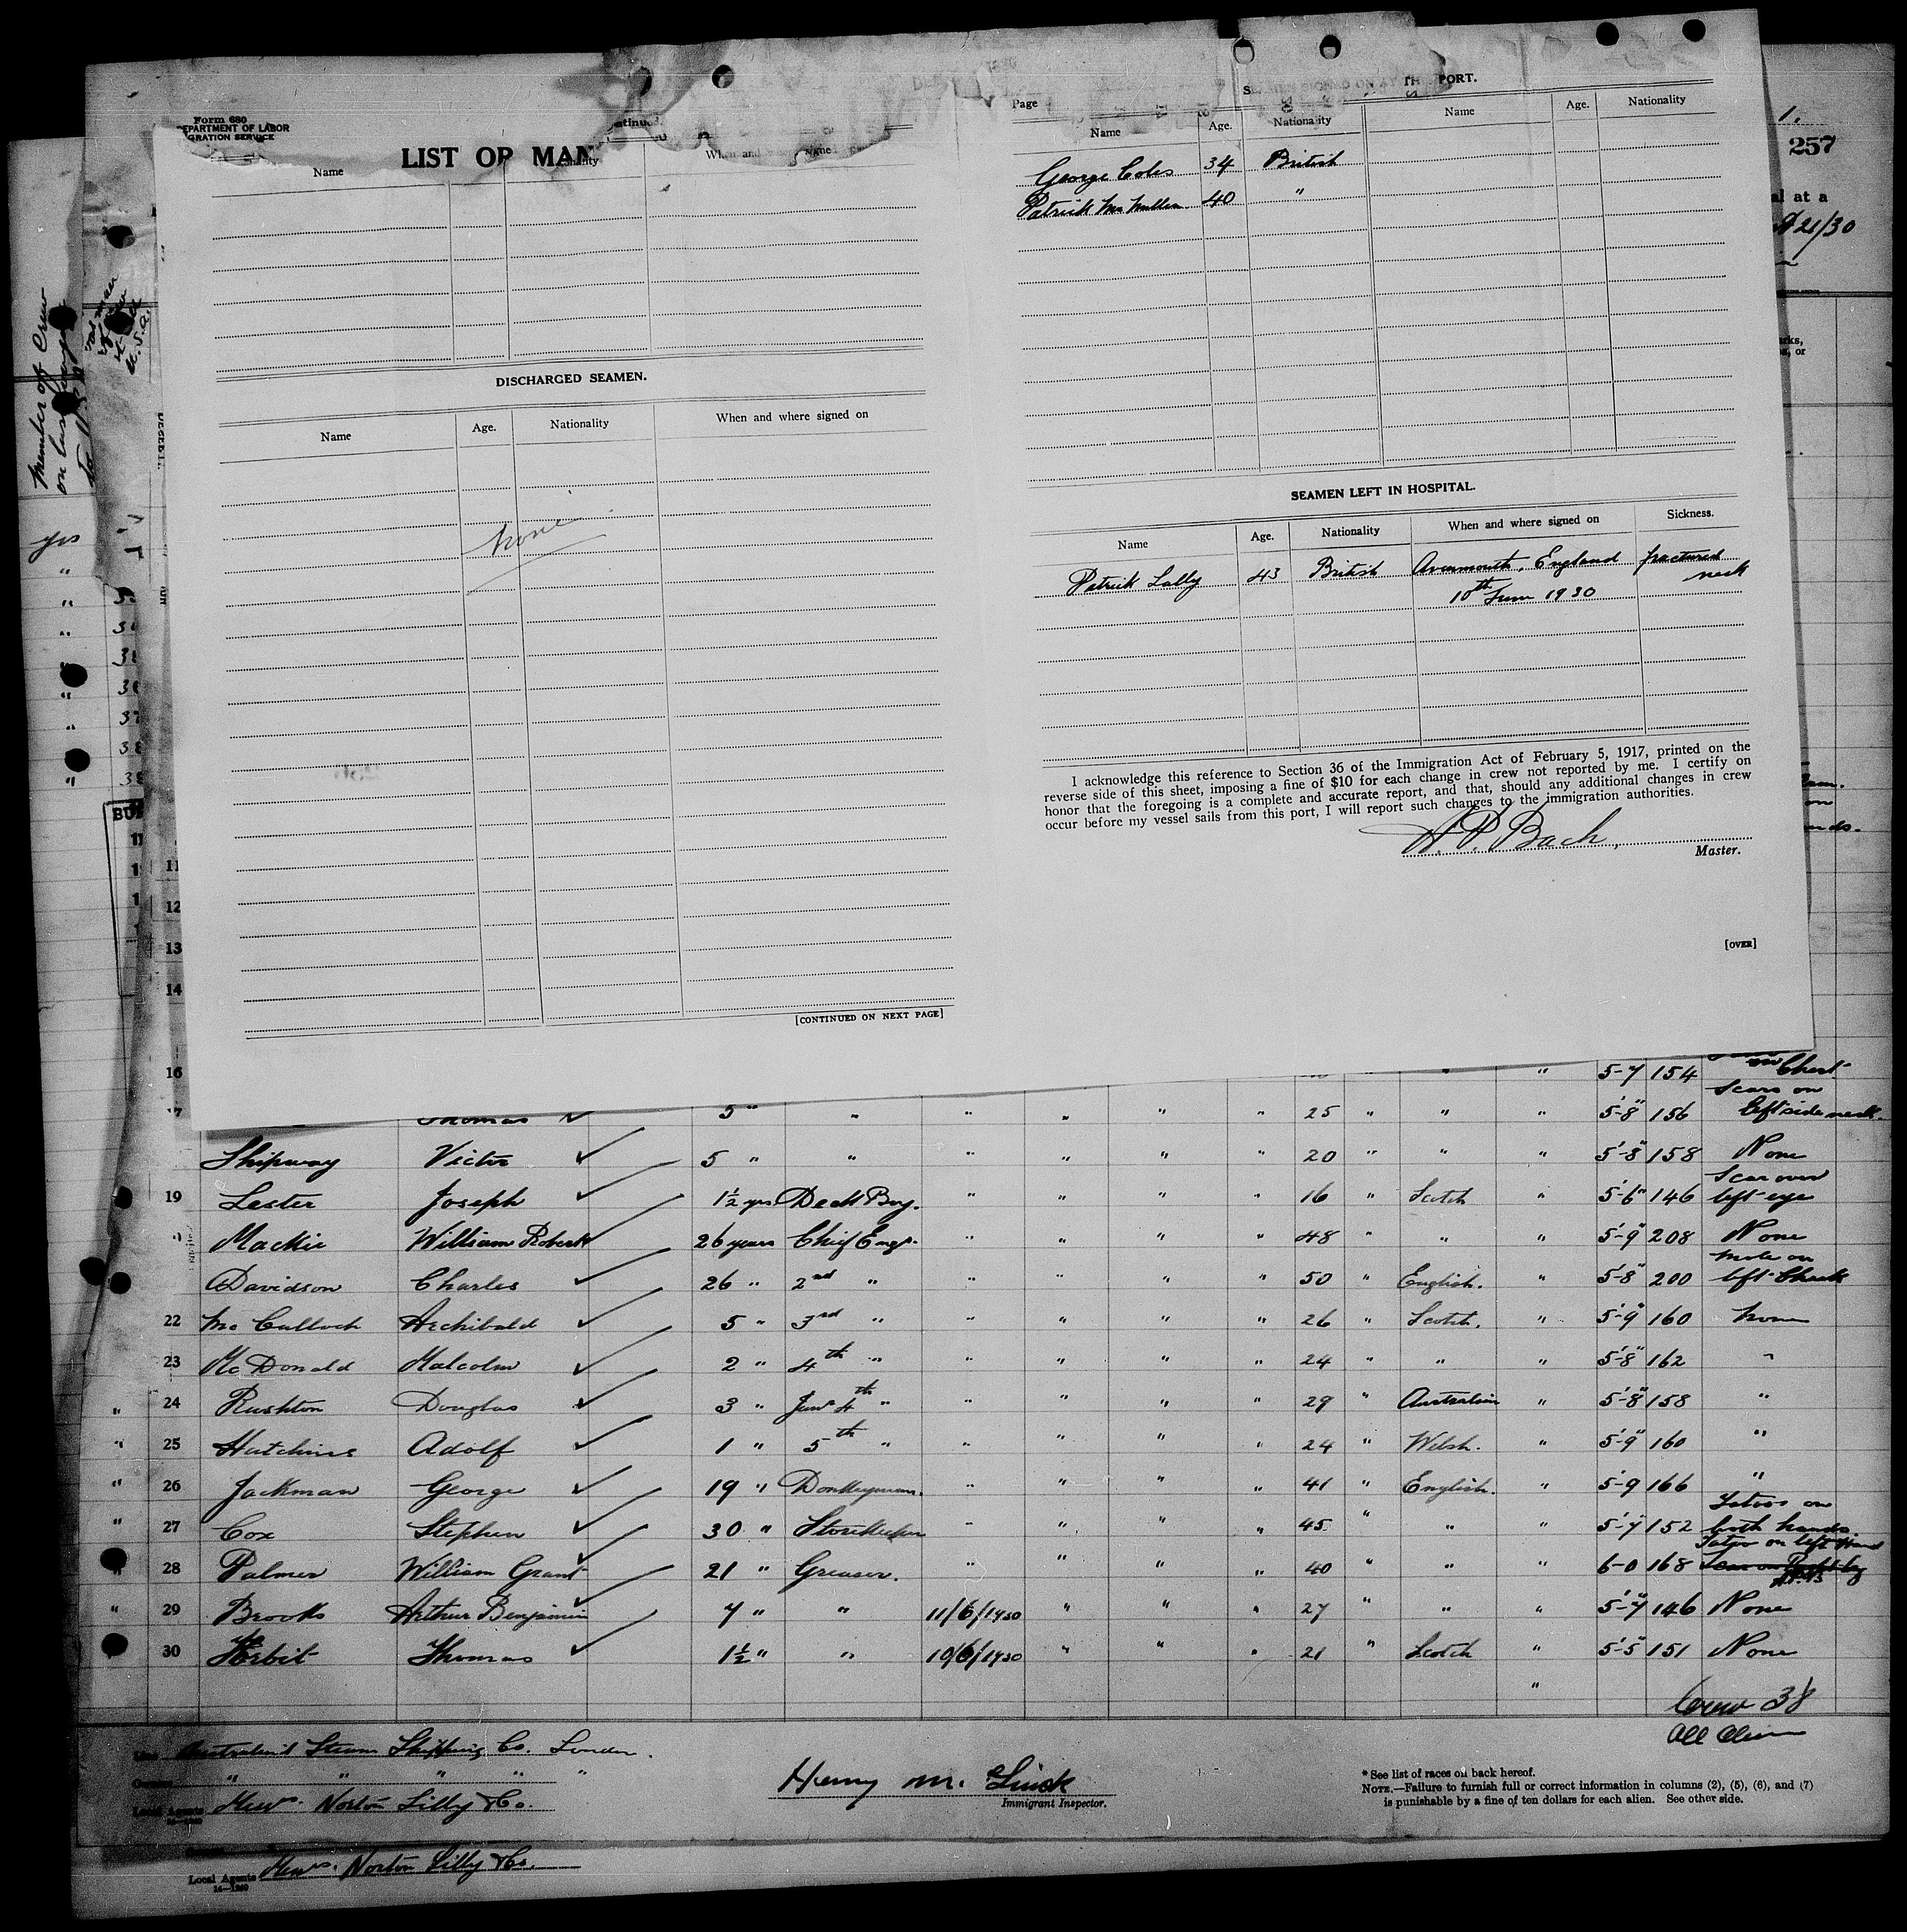 Form 680
DEPARTMENT OF LABOR
GRATION SERVICE
LIST OR MAN
Name
When and
DISCHARGED SEAMEN.
Name Age. Nationality When and where signed on
none
[CONTINUED ON NEXT PAGE]
Page
PORT.
Name Age. Nationality Name Age. Nationality
George Coles 34 British
Patrick McMullen 40 "
SEAMEN LEFT IN HOSPITAL.
Name Age. Nationality When and where signed on Sickness.
Patrick Lally 43 British Avonmouth, England fractured
10th June 1930 neck
I acknowledge this reference to Section 36 of the Immigration Act of February 5, 1917, printed on the
reverse side of this sheet, imposing a fine of $10 for each change in crew not reported by me. I certify on
honor that the foregoing is a complete and accurate report, and that, should any additional changes in crew
occur before my vessel sails from this port, I will report such changes to the immigration authorities.
Master.
[OVER]
1.
257
al at a
21/30
Member of Crew
on last voyage
to U.S.
U.S.A.
yes
37
38
11
12
13
14
16 " " 5-7 154 on Chest
Scars on
Thomas 5 " " " " " " 25 " " " 5-8 156 left side neck.
Shipway Victor 5 " " " " " " 20 " " " 5-8 158 None
Scar over
19 Lester Joseph 1½ yrs Deck Boy. " " " " 16 " Scotch " 5-6 146 left eye
Mackie William Robert 26 years Chief Engr. " " " " 48 " " " 5-9 208 None
Mole on
Davidson Charles 26 " 2nd " " " " " 50 " English. " 5-8 200 left Cheek
22 McCulloch Archibald 5 " 3rd " " " " " 26 " Scotch. " 5-9 160 None
23 McDonald Malcolm 2 " 4th " " " " " 24 " " " 5-8 162 "
" 24 Rushton Douglas 3 " Junr 4th " " " " " 29 " Australian " 5-8 158 "
" 25 Hutchins Adolf 1 " 5th " " " " " 24 " Welsh. " 5-9 160 "
" 26 Jackman George 19 " Donkeyman. " " " " 41 " English. " 5-9 166 "
Tatoos on
" 27 Cox Stephen 30 " Storekeeper " " " " 45 " " " 5-7 152 both hands.
Tatoo on left Hand
" 28 Palmer William Grant 21 " Greaser. " " " " 40 " " " 6-0 168
" 29 Brooks Arthur Benjamin 7 " " 11/6/1930 " " " 27 " " " 5-7 146 None
30 Thomas 1½ " " 10/6/1930 " " " 21 " Scotch " 5-5 151 None
"
Crew 38
All Alien
Steam Shipping Co. London.
" " " " "
Local Agents Messrs. Norton Lilly & Co.
Henry M.
Immigrant Inspector.
* See list of races on back hereof.
NOTE.—Failure to furnish full or correct information in columns (2), (5), (6), and (7)
is punishable by a fine of ten dollars for each alien. See other side.
Local Agents Messrs. Norton Lilly & Co.